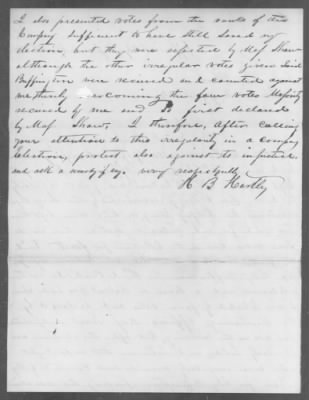 I also presented votes from the ranks of this
Company sufficient to have still saved my
election, but they were rejected by Maj Shaw
although the other irregular votes given said
Buffington were received and counted against
me, thereby overcoming the fair votes Majority
received by me and first declared
by Maj Shaw, I therefore, after calling
your attention to this irregularity in a company
Election, protest also against its injustice,
and ask a remedy very respectfully
H B